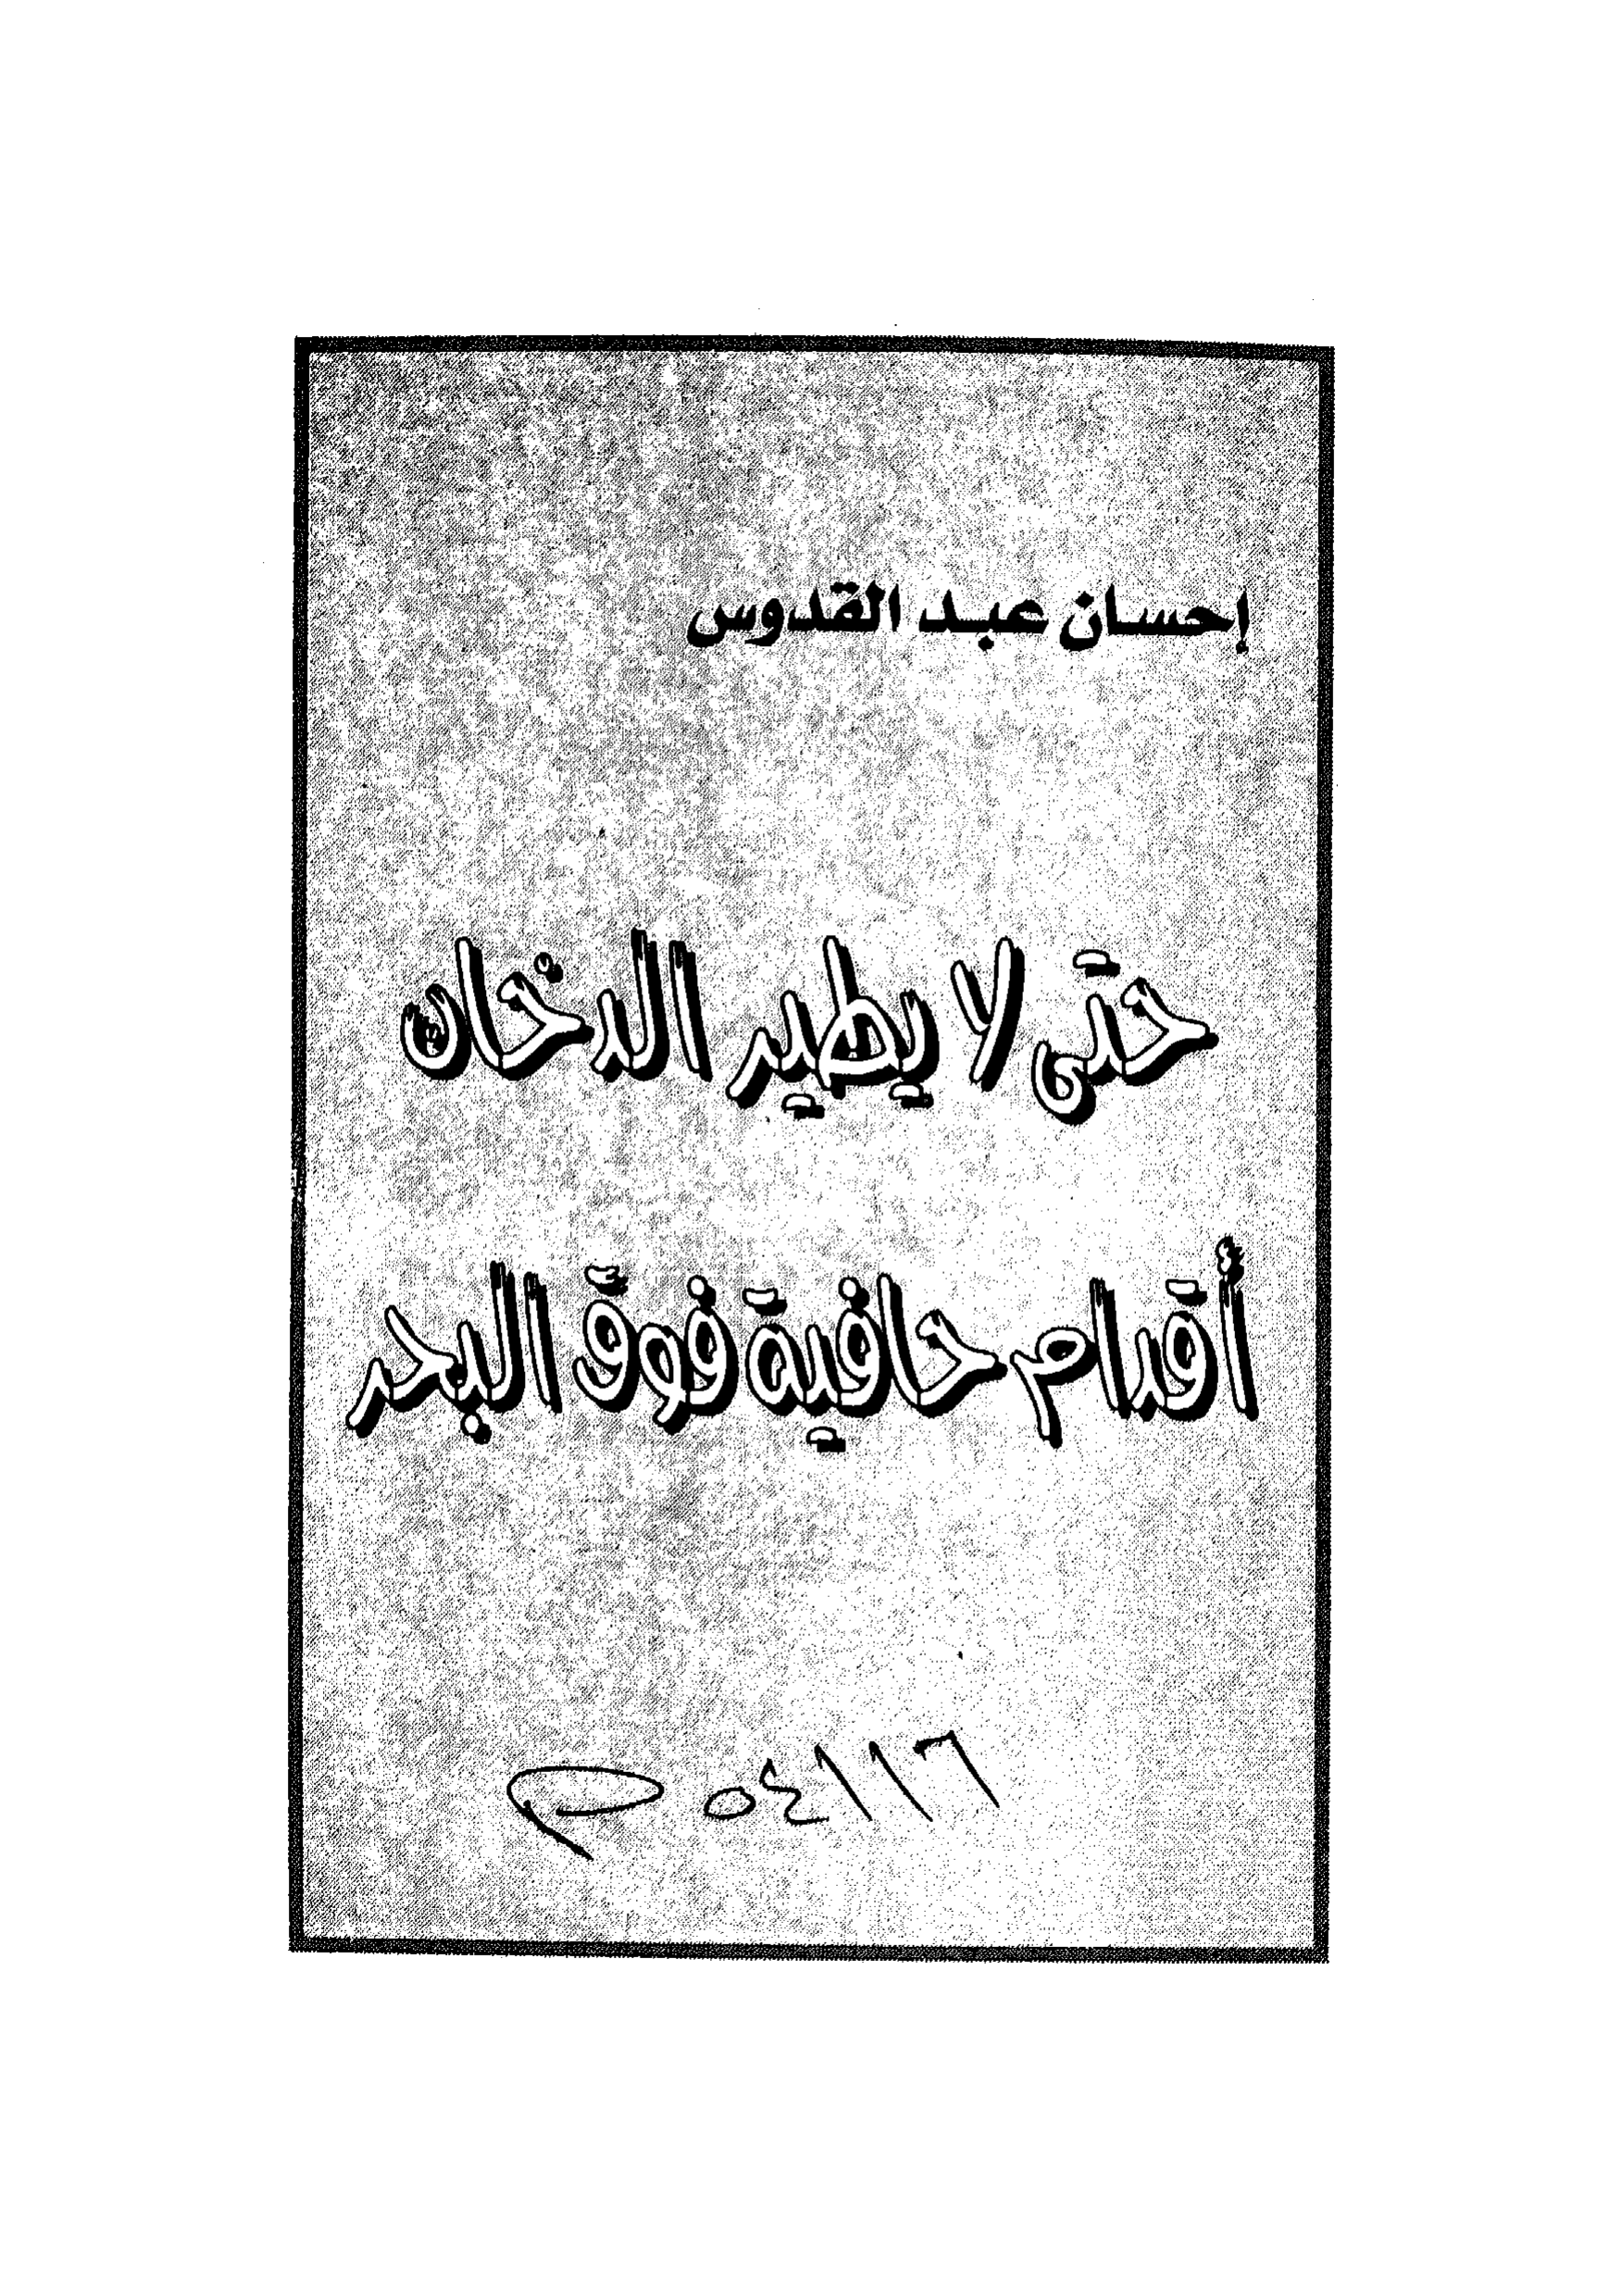 إحسان عبد القدوس
حتى لا يطير الدخان
أقدام حافية فوق البحر